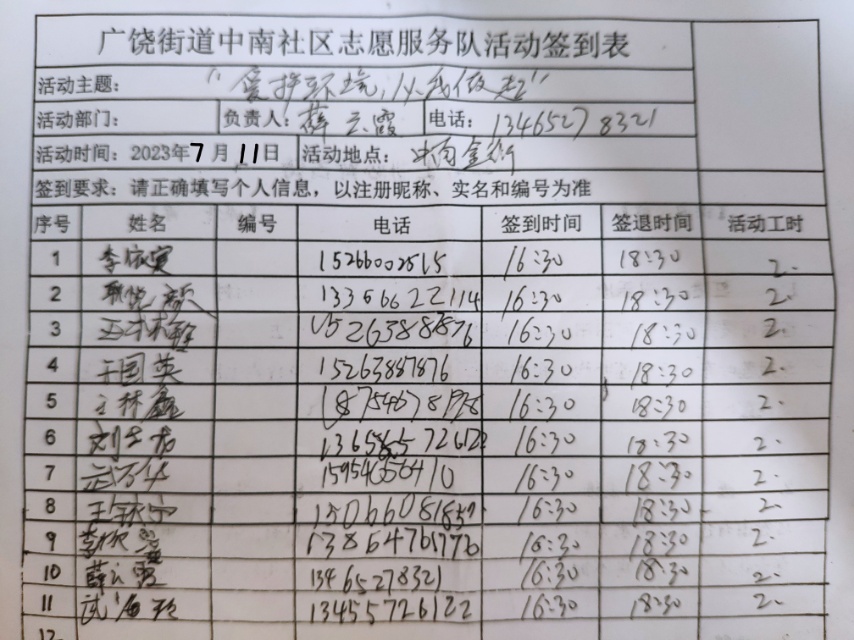 广饶街道中南社区志愿服务队活动签到表
活动主题: “爱护环境,从我做起”
活动部门: 负责人: 薛云霞 电话: 13465278321
活动时间: 2023年7月11日 活动地点: 中南金街
签到要求: 请正确填写个人信息，以注册昵称、实名和编号为准
序号 姓名 编号 电话 签到时间 签退时间 活动工时
1 李依寅 15266002515 16:30 18:30 2.
2 耿悦颜 13356622114 16:30 18:30 2.
3 15263888876 16:30 18:30 2.
4 于国英 15263887876 16:30 18:30 2.
5 王林鑫 18754678958 16:30 18:30 2.
6 16:30 18:30 2.
7 武万华 15954656410 16:30 18:30 2.
8 15066081857 16:30 18:30 2.
9 13864761776 16:30 18:30 2.
10 薛云霞 13465278321 16:30 18:30 2.
11 武海玲 13455726122 16:30 18:30 2.
12